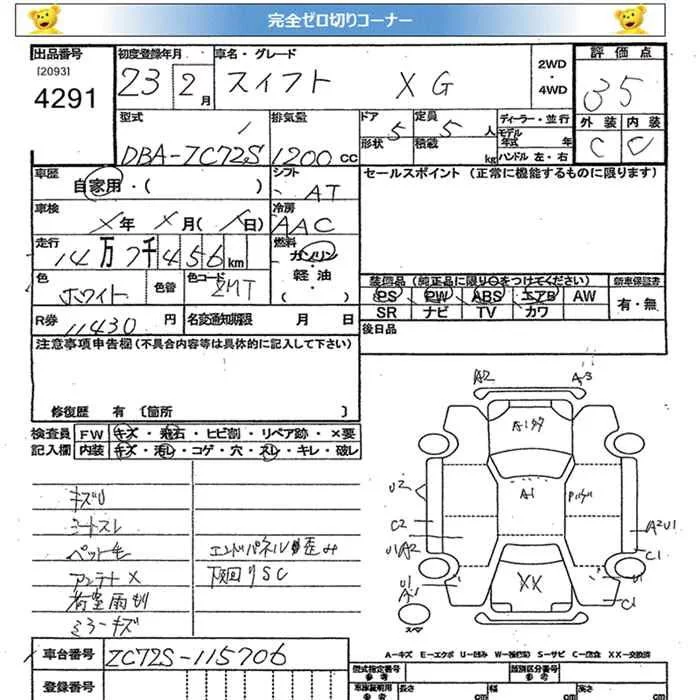 完全ゼロ切りコーナー
出品番号 初度登録年月 車名・グレード 2WD・4WD 評価点
[2093] 4291 23 2月 スイフト XG 35
外装 内装
C C
型式 排気量 ドア 定員 ディーラー・並行
DBA-ZC72S 1200cc 5 5人 モデル年式 年
形状 積載 kg ハンドル 左・右
車歴 自家用・( ) シフト AT セールスポイント(正常に機能するものに限ります)
車検 X年 X月( X日) 冷房 AAC
走行 14万7千456km 燃料 ガソリン・軽油・( )
色 ホワイト 色替 色コード ZMT
装備品(純正品に限り○をつけてください) 新車保証書
PS PW ABS エアB AW 有・無
SR ナビ TV カワ
R券 11430円 名変通知期限 月 日 後日品
注意事項申告欄(不具合内容等は具体的に記入して下さい)
修復歴 有〔箇所 〕
検査員記入欄 FW キズ・飛石・ヒビ割・リペア跡・×要
内装 キズ・汚レ・コゲ・穴・スレ・キレ・破レ
キズU
シートスレ
ペット毛 エンドパネル歪み
アンテナX 下回りSC
荷室雨モリ
ミラーキズ
A2 A3
A1
U2
C2
U1A2
A2U1
C1
U1
A1
U1
C1
XX
スペア
A-キズ E-エクボ U-凹み S-サビ C-腐食 XX-交換済
車台番号 ZC72S-115706
登録番号
型式指定番号 参考 類別区分番号 参考
車庫証明用 参考 長さ cm 幅 cm 高さ cm